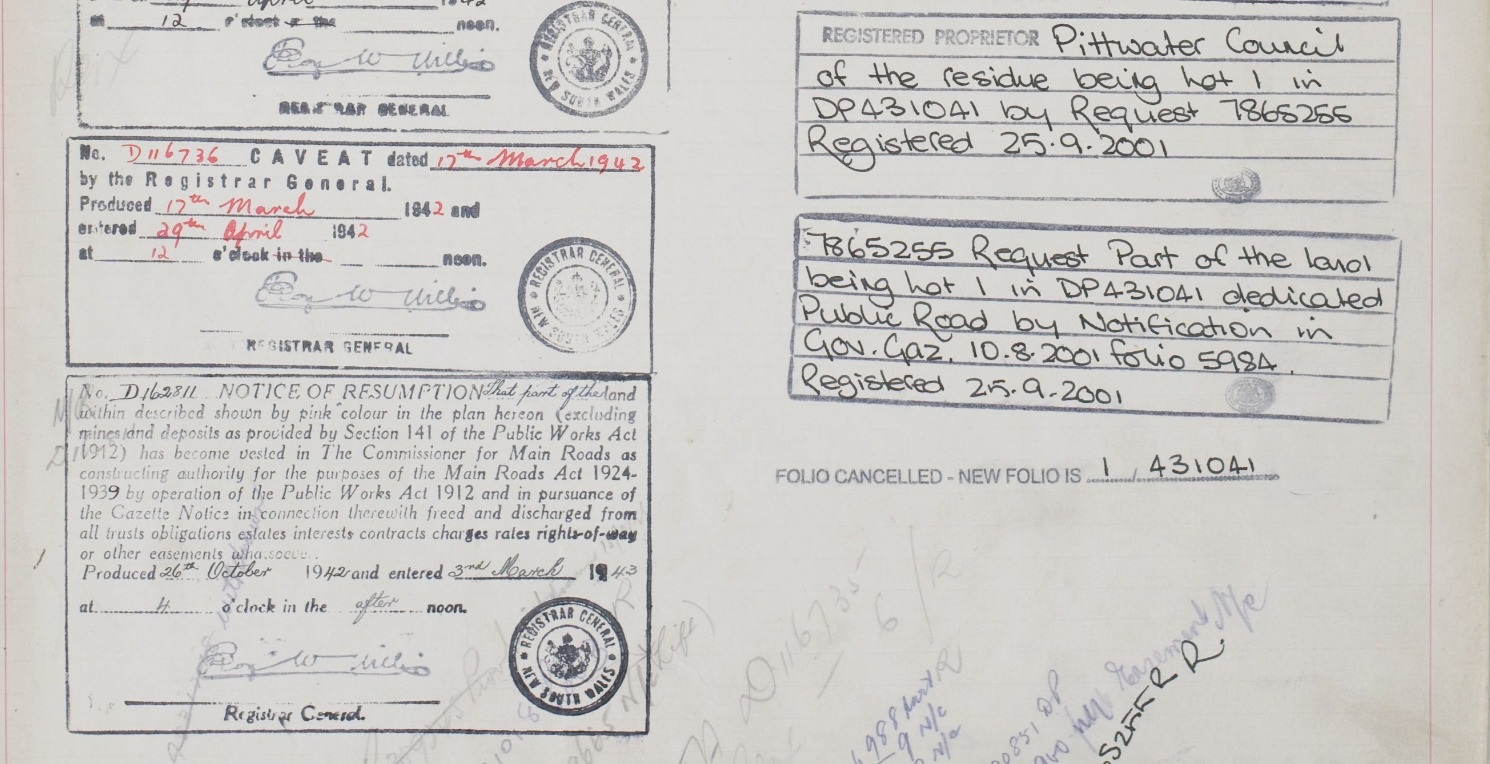 at 12 o'clock in the noon.
Roy W Willis
REGISTRAR GENERAL
REGISTRAR GENERAL NEW SOUTH WALES
No. D116736 CAVEAT dated 17th March 1942
by the Registrar General.
Produced 17th March 1942 and
entered 29th April 1942
at 12 o'clock in the noon.
Roy W Willis
REGISTRAR GENERAL
REGISTRAR GENERAL NEW SOUTH WALES
No. D162811 NOTICE OF RESUMPTION That part of the land
within described shown by pink colour in the plan hereon (excluding
mines and deposits as provided by Section 141 of the Public Works Act
1912) has become vested in The Commissioner for Main Roads as
constructing authority for the purposes of the Main Roads Act 1924-
1939 by operation of the Public Works Act 1912 and in pursuance of
the Gazette Notice in connection therewith freed and discharged from
all trusts obligations estates interests contracts charges rates rights-of-way
or other easements whatsoever.
Produced 26th October 1942 and entered 3rd March 1943
at 4 o'clock in the after noon.
Roy W Willis
Registrar General.
REGISTRAR GENERAL NEW SOUTH WALES
REGISTERED PROPRIETOR Pittwater Council
of the residue being Lot 1 in
DP431041 by Request 7865255
Registered 25.9.2001
7865255 Request Part of the land
being Lot 1 in DP431041 dedicated
Public Road by Notification in
Gov. Gaz. 10.8.2001 folio 5984.
Registered 25.9.2001
FOLIO CANCELLED - NEW FOLIO IS 1 / 431041
D116735
6/R
Easement N/c
R